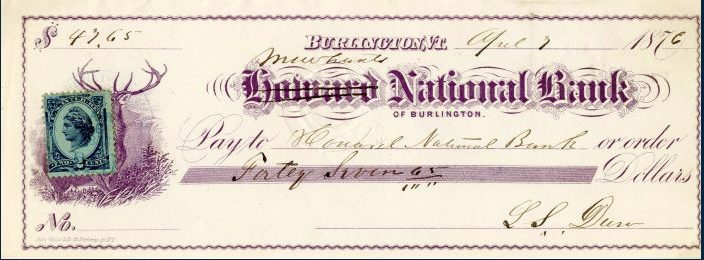 $ 47.65 Burlington, Vt. April 7 1876
Merchants
Howard National Bank
OF BURLINGTON.
Pay to Howard National Bank or order
Forty Seven 65/100 Dollars
No. L. S. Drew